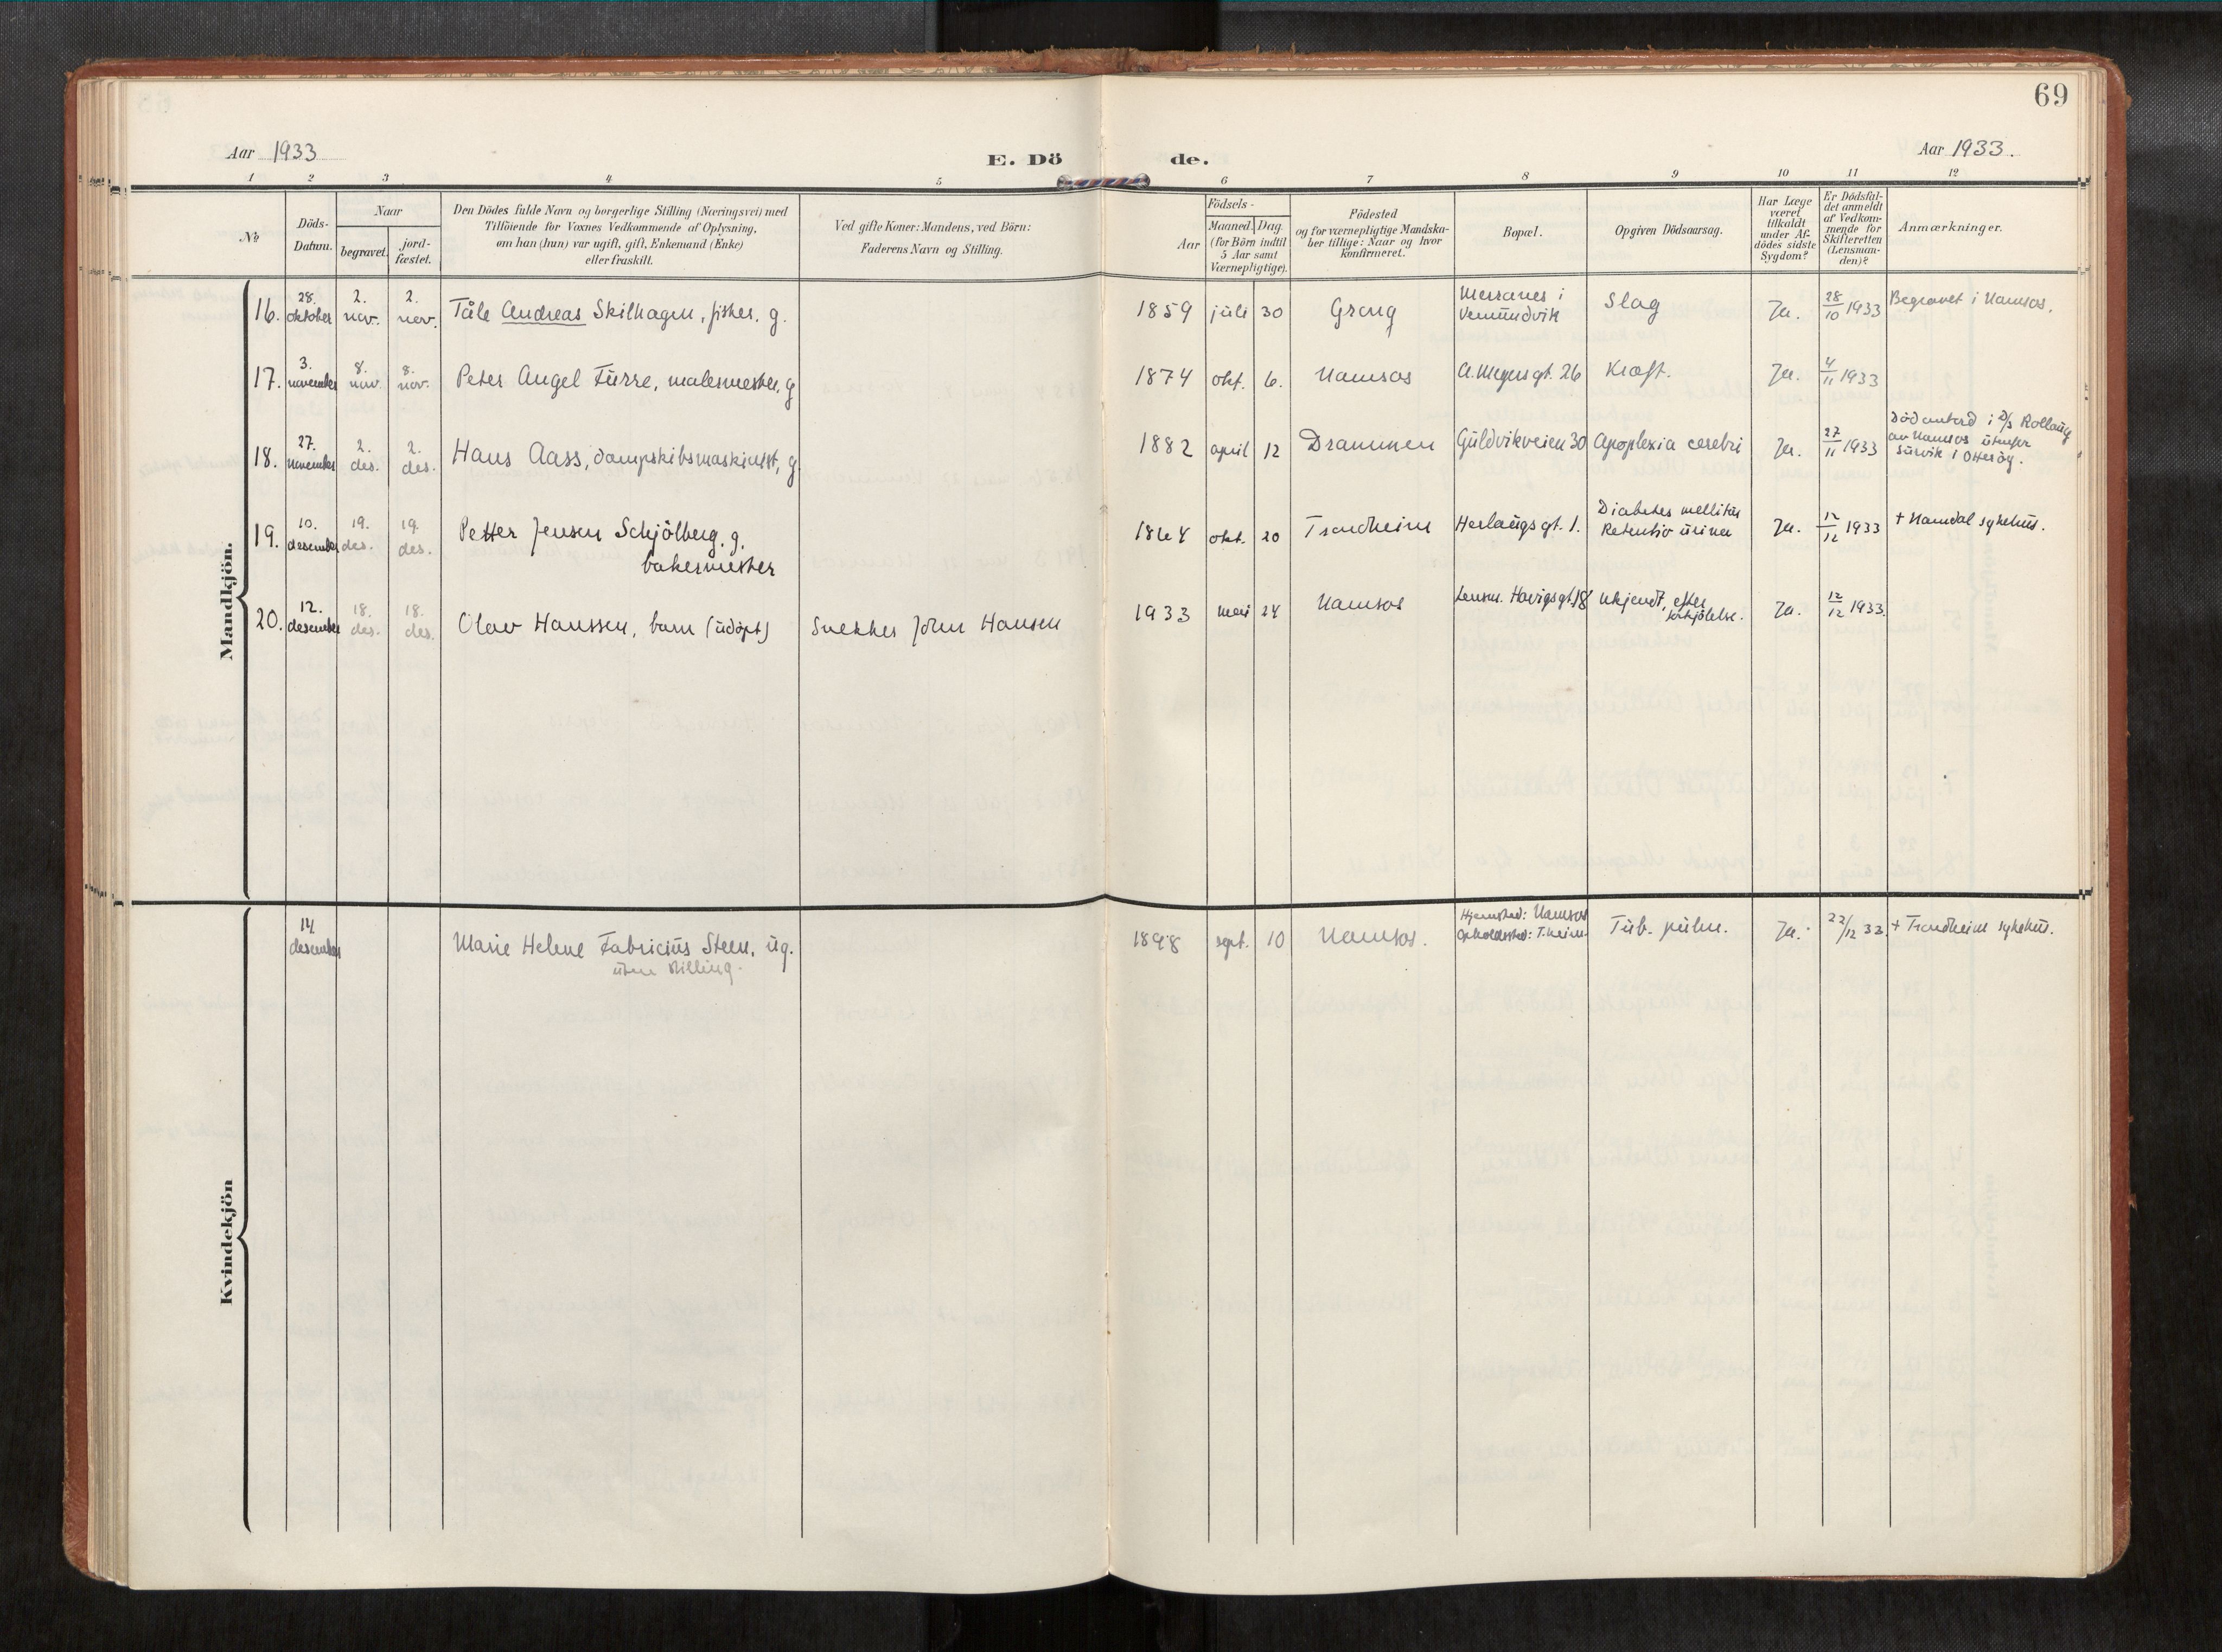 69
Aar 1933
E. Dö de.
Aar 1933.
1 2 3 4 5 6 7 8 9 10 11 12
No
Döds-
Datum.
Naar
begravet.
jord-
fæstet.
Den Dödes fulde Navn og borgerlige Stilling (Næringsvei) med
Tilföiende for Voxnes Vedkommende af Oplysning,
om han (hun) var ugift, gift, Enkemand (Enke)
eller fraskilt.
Ved gifte Koner: Mandens, ved Börn:
Faderens Navn og Stilling.
Födsels-
Aar
Maaned. Dag.
(for Börn indtil
5 Aar samt
Værnepligtige).
Födested
og for værnepligtige Mandska-
ber tillige: Naar og hvor
konfirmeret.
Bopæl.
Opgiven Dödsaarsag.
Har Læge
været
tilkaldt
under Af-
dödes sidste
Sygdom?
Er Dödsfal-
det anmeldt
af Vedkom-
mende for
Skifteretten
(Lensman-
den)?
Anmærkninger.
Mandkjön.
16. 28. oktober 2. nov. 2. nov. Tåle Andreas Skilhagen, fisker, g. 1859 juli 30 Grong Merranes i Vemundvik Slag Ja. 28/10 1933 Begravet i Namsos.
17. 3. november 8. nov. 8. nov. Peter Angel Furre, malermester, g 1874 okt. 6. Namsos A. Meyers gt. 26 Kræft. Ja. 4/11 1933
18. 27. november 2. des. 2. des. Hans Aass, dampskibsmaskinist, g 1882 april 12 Drammen Guldvikveien 30 Apoplexia cerebri Ja. 27/11 1933 Död ombord i D/s Rollaug
av Namsos utenfor
Survik i Otteröy.
19. 10. desember 19. des. 19. des. Petter Jensen Schjölberg, g. 1864 okt. 20 Trondheim Herlaugs gt. 1. Diabetes mellitus
Retentio urinæ Ja. 12/12 1933 + Namdal sykehus.
bakermester
20. 12. desember 18. des. 18. des. Olav Hanssen, barn (udöpt) Snekker John Hansen 1933 mai 24 Namsos Lensm. Havigs gt. 18 Ukjendt, efter
forkjölelse. Ja. 12/12 1933.
Kvindekjön
14 desember Marie Helene Fabricius Steen, ug. 1898 sept. 10 Namsos. Hjemsted: Namsos
Opholdssted: T.heim. Tub. pulm. Ja. 22/12 33. + Trondheim sykehus.
uten stilling.